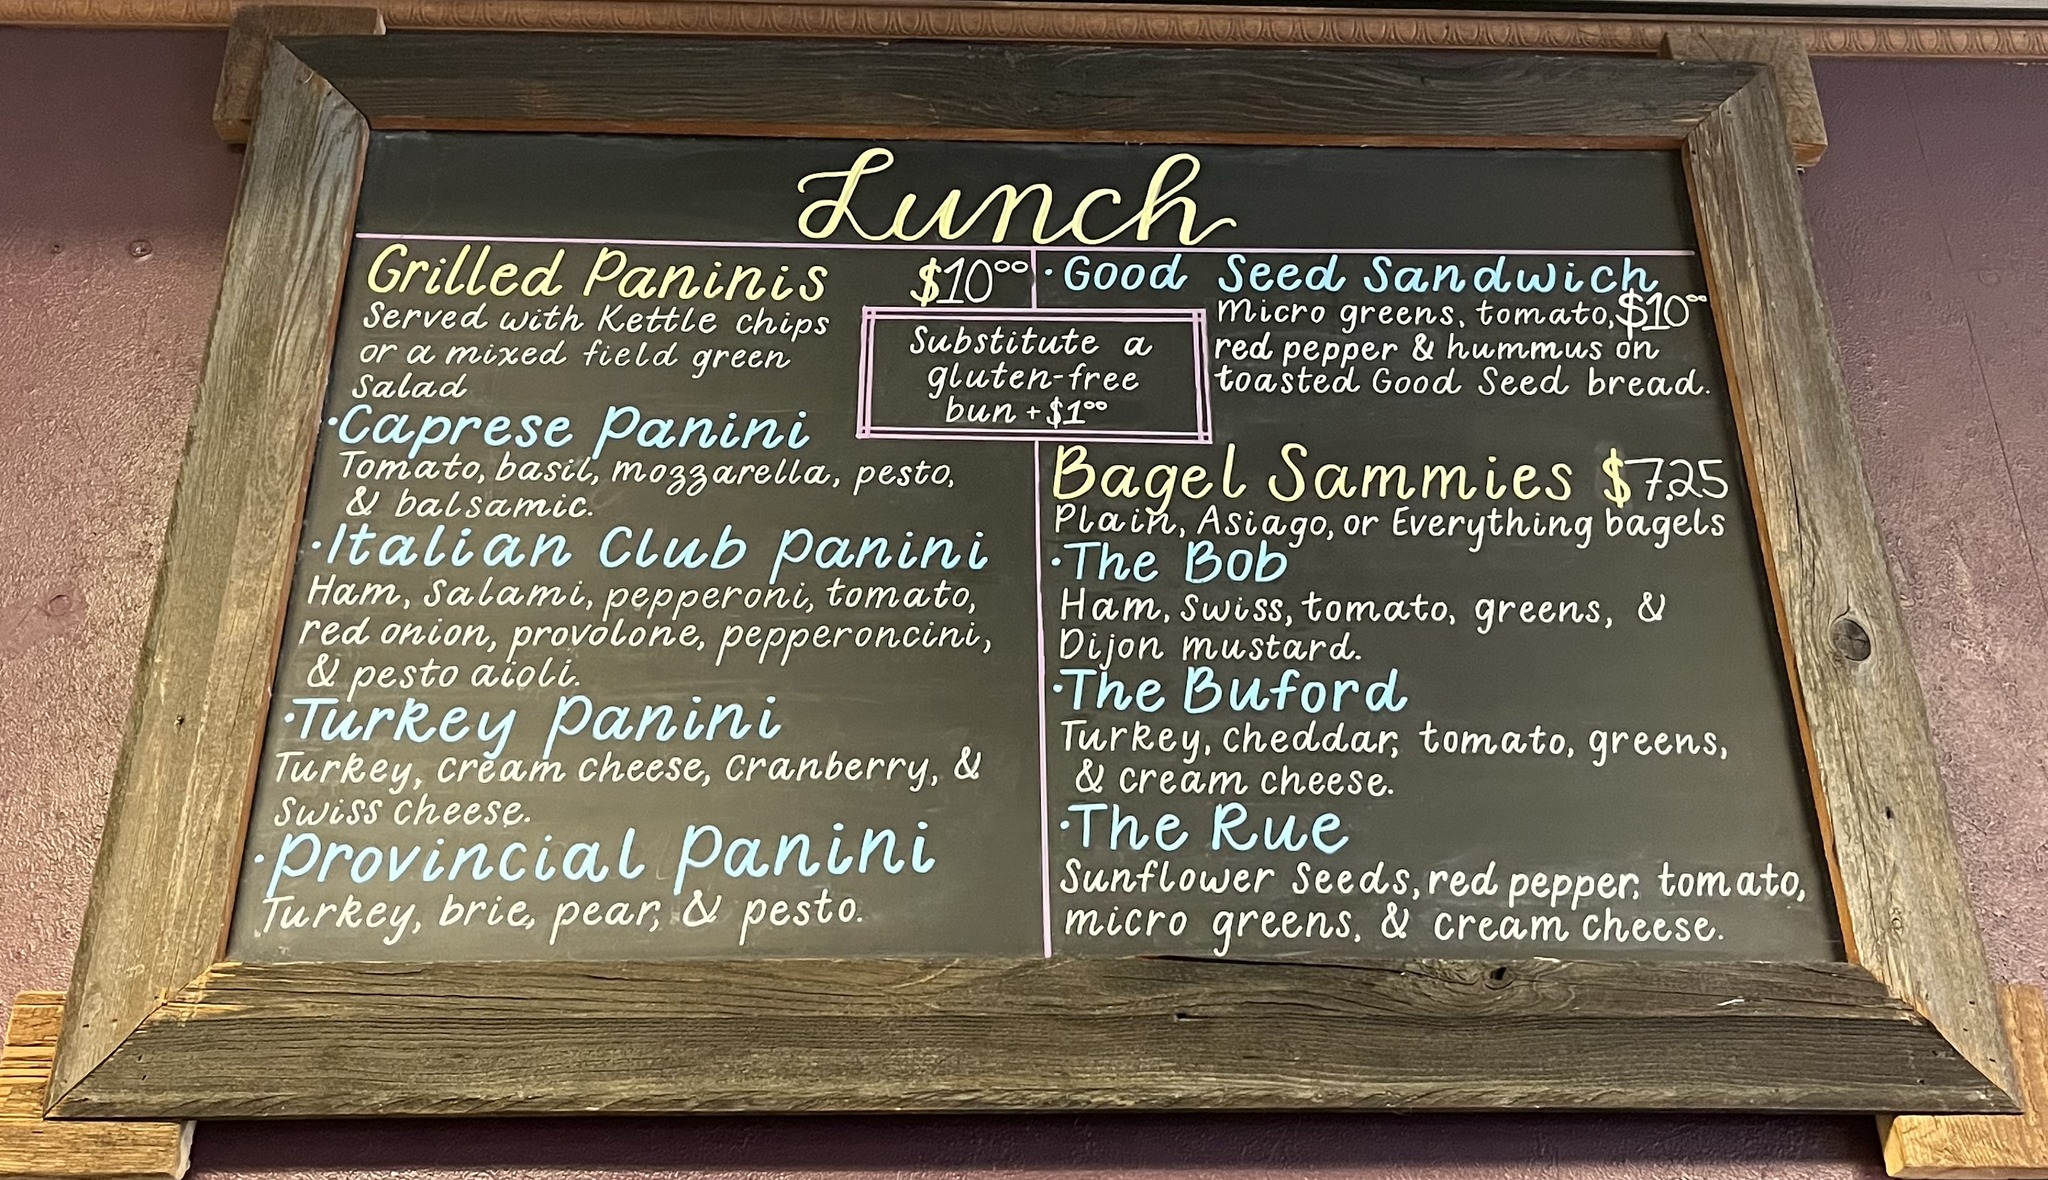 Lunch
Grilled Paninis $10⁰⁰
Served with Kettle chips
or a mixed field green
salad
·Caprese Panini
Tomato, basil, mozzarella, pesto,
& balsamic.
·Italian Club Panini
Ham, Salami, pepperoni, tomato,
red onion, provolone, pepperoncini,
& pesto aioli.
·Turkey Panini
Turkey, cream cheese, cranberry, &
swiss cheese.
·Provincial Panini
Turkey, brie, pear, & pesto.
Substitute a
gluten-free
bun +$1⁰⁰
·Good Seed Sandwich
Micro greens, tomato, $10⁰⁰
red pepper & hummus on
toasted Good Seed bread.
Bagel Sammies $7.25
Plain, Asiago, or Everything bagels
·The Bob
Ham, swiss, tomato, greens, &
Dijon mustard.
·The Buford
Turkey, cheddar, tomato, greens,
& cream cheese.
·The Rue
Sunflower seeds, red pepper, tomato,
micro greens, & cream cheese.